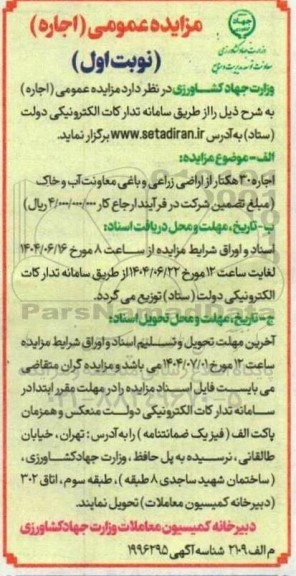 مزایده عمومی (اجاره)
(نوبت اول)
جهاد
وزارت جهاد کشاورزی
معاونت توسعه مدیریت و منابع
وزارت جهاد کشاورزی در نظر دارد مزایده عمومی (اجاره)
به شرح ذیل را از طریق سامانه تدارکات الکترونیکی دولت
(ستاد) به آدرس www.setadiran.ir برگزار نماید.
الف - موضوع مزایده:
اجاره ۳۰ هکتار از اراضی زراعی و باغی معاونت آب و خاک
(مبلغ تضمین شرکت در فرآیند ارجاع کار ۴/۰۰۰/۰۰۰/۰۰۰ ریال)
ب - تاریخ، مهلت و محل دریافت اسناد:
اسناد و اوراق شرایط مزایده از ساعت ۸ مورخ ۱۴۰۴/۰۶/۱۶
لغایت ساعت ۱۲ مورخ ۱۴۰۴/۰۶/۲۲ از طریق سامانه تدارکات
الکترونیکی دولت (ستاد) توزیع می گردد.
ج - تاریخ، مهلت و محل تحویل اسناد:
آخرین مهلت تحویل و تسلیم اسناد و اوراق شرایط مزایده
ساعت ۱۲ مورخ ۱۴۰۴/۰۷/۰۱ می باشد و مزایده گران متقاضی
می بایست فایل اسناد مزایده را در مهلت مقرر ابتدا در
سامانه تدارکات الکترونیکی دولت منعکس و همزمان
پاکت الف (فیزیک ضمانتنامه) را به آدرس: تهران، خیابان
طالقانی، نرسیده به پل حافظ، وزارت جهاد کشاورزی،
(ساختمان شهید ساجدی ۸ طبقه)، طبقه سوم، اتاق ۳۰۲
(دبیرخانه کمیسیون معاملات) تحویل نمایند.
دبیرخانه کمیسیون معاملات وزارت جهاد کشاورزی
م الف ۲۱۰۹ شناسه آگهی ۱۹۹۶۲۹۵